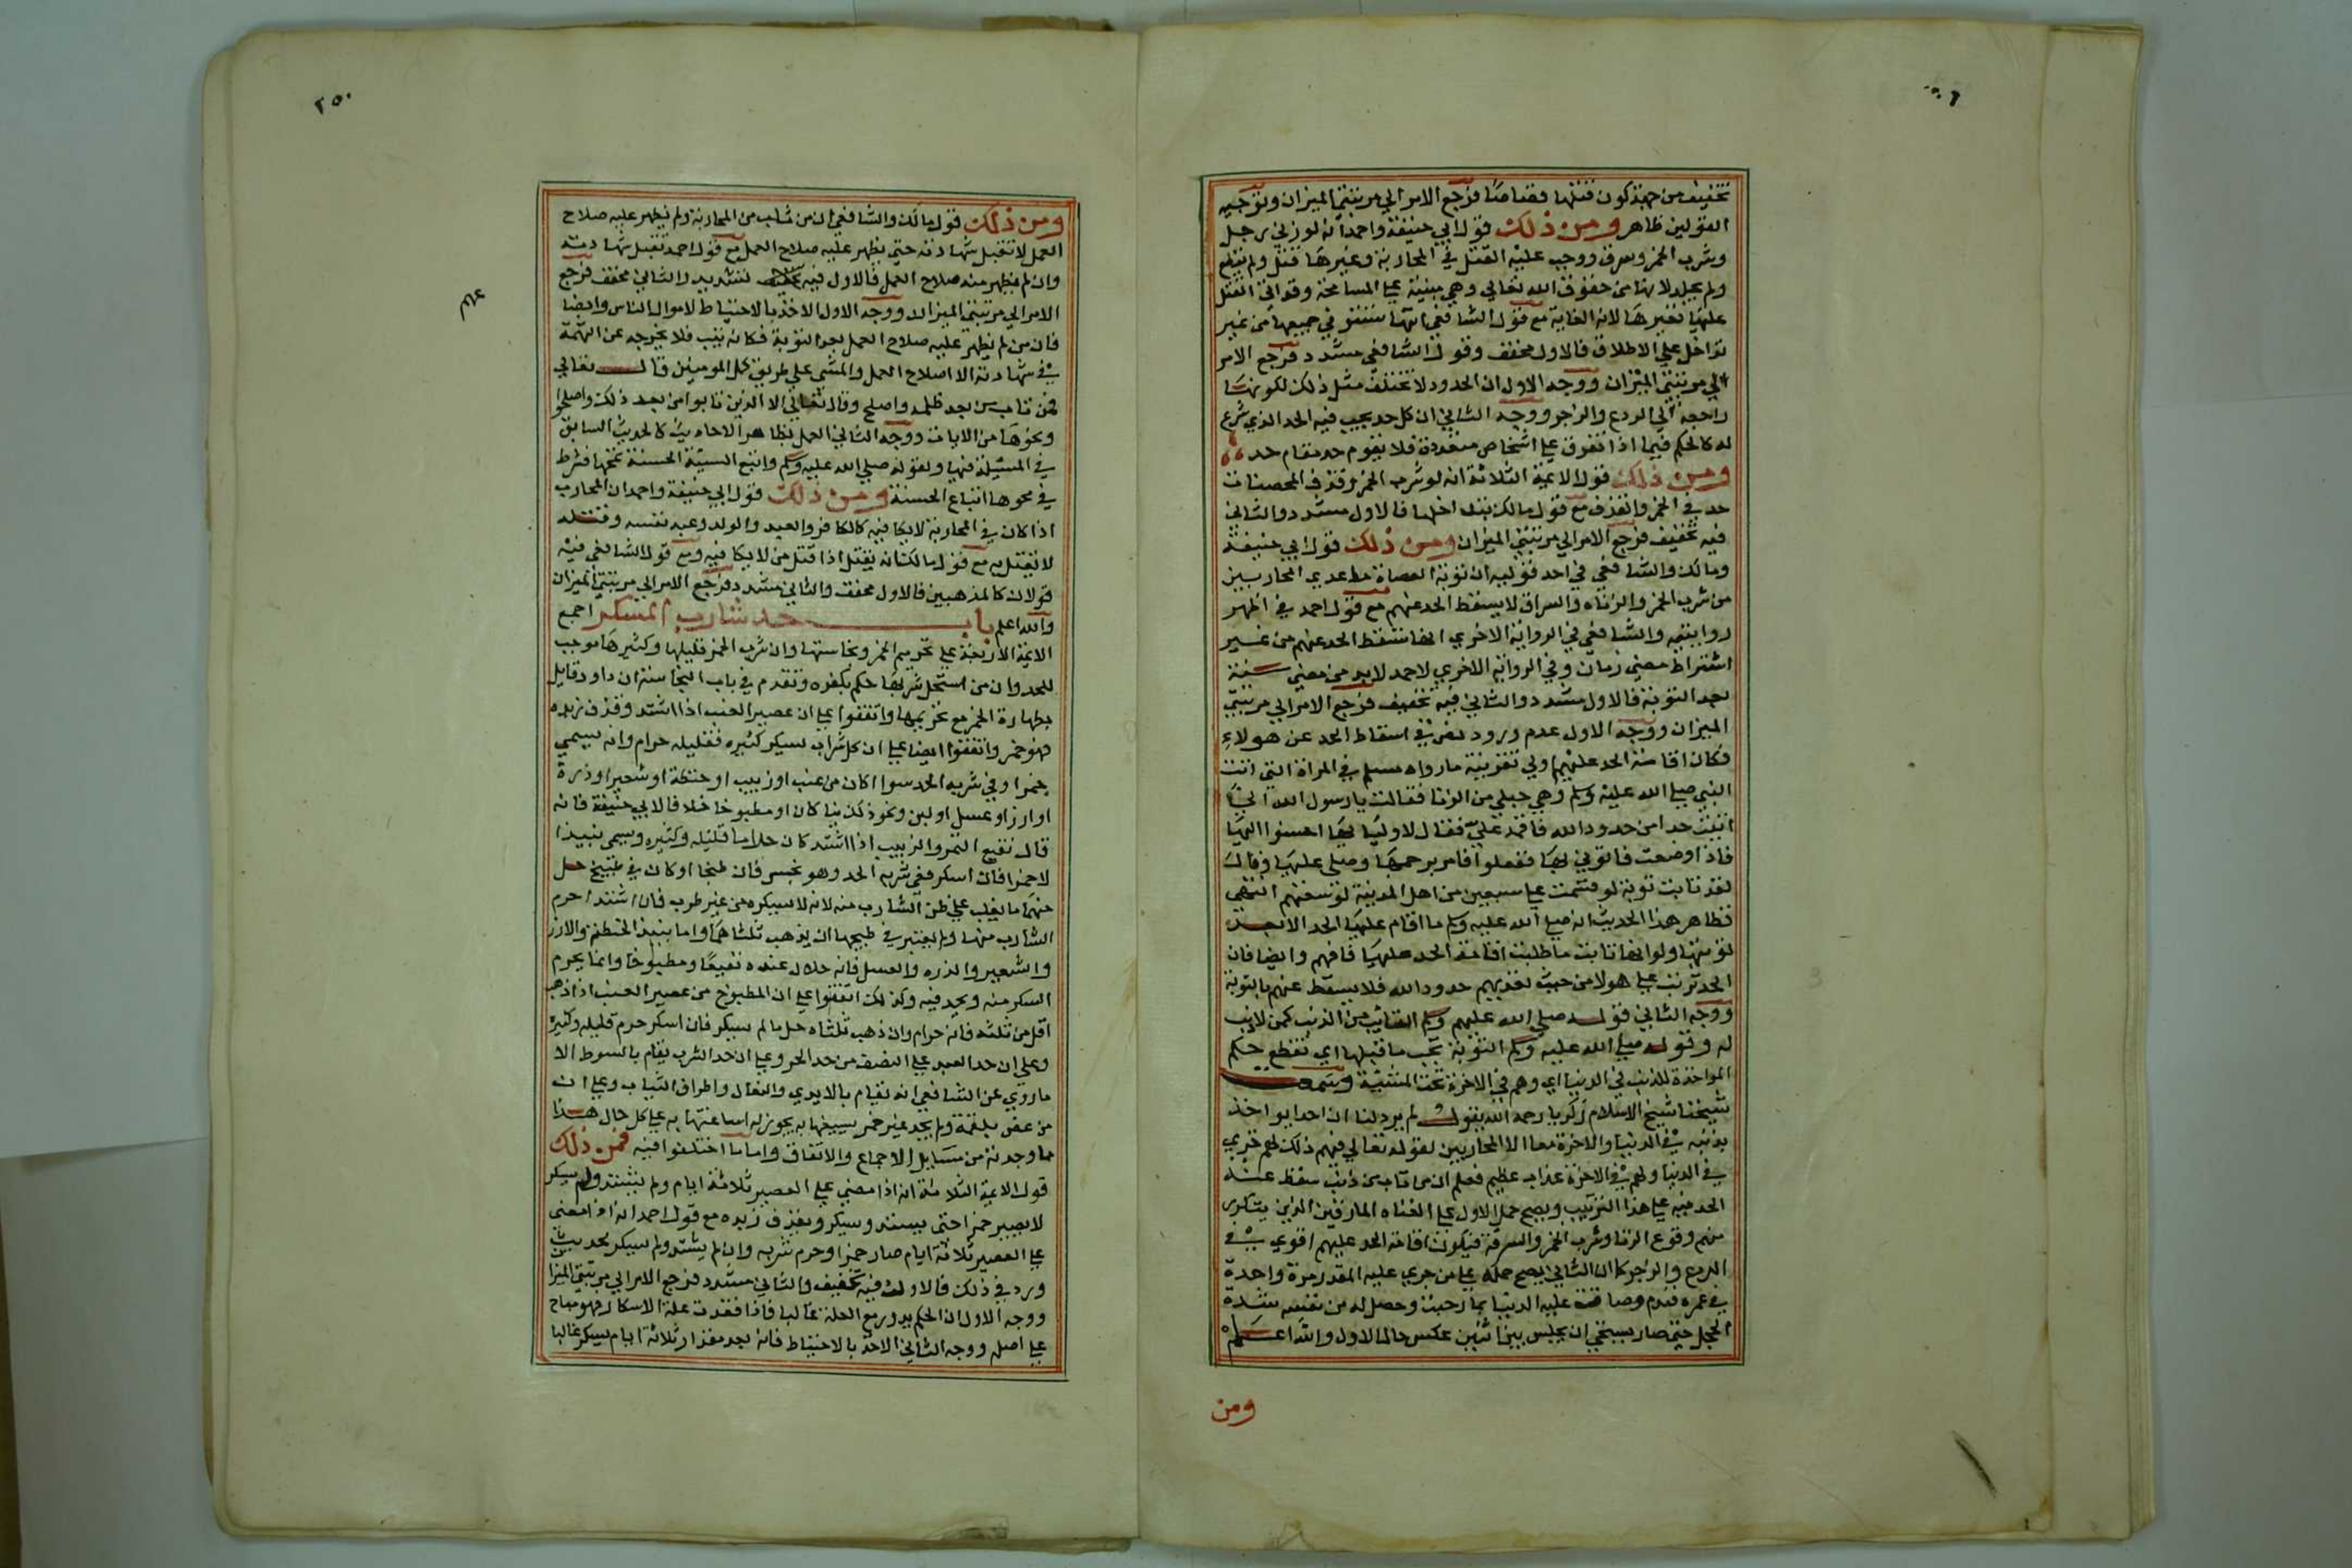 تخفيف من جهة كون قتلها قصاصا فرجع الامر الي مرتبتي الميزان وتوجيه
القولين ظاهر ومن ذلك قول ابي حنيفة واحمد انه لو زني رجل
وشرب الخمر وسرق ووجب عليه القتل في المحاربة وغيرها قتل ولم يقطع
ولم يجلد لانها من حقوق الله تعالي وهي مبنية علي المسامحة وقد اتي القتل
عليها فغمرها لانه الغاية مع قول الشافعي انها تستوفي جميعها من غير
تداخل علي الاطلاق فالاول مخفف وقول الشافعي مشدد فرجع الامر
الي مرتبتي الميزان ووجه الاول ان الحدود لا تختلف مثل ذلك لكونها
راجعة الي الردع والزجر ووجه الثاني ان كل حد يجب فيه الحد الذي شرع
له كالحكم فيما اذا تفرق علي اشخاص متعددة فلا يقوم حد مقام حد
ومن ذلك قول الايمة الثلاثة انه لو شرب الخمر وقذف المحصنات
حد في الخمر والقذف مع قول مالك بتداخلها فالاول مشدد والثاني
فيه تخفيف فرجع الامر الي مرتبتي الميزان ومن ذلك قول ابي حنيفة
ومالك والشافعي في احد قوليه ان توبة العصاة ما عدي المحاربين
من شرب الخمر والزناه والسراق لا يسقط الحد عنهم مع قول احمد في اظهر
روايتيه والشافعي في الرواية الاخري انها تسقط الحد عنهم من غير
اشتراط مضي زمان وفي الرواية الاخري لاحمد لا بد من مضي سنة
بعد التوبة فالاول مشدد والثاني فيه تخفيف فرجع الامر الي مرتبتي
الميزان ووجه الاول عدم ورود نص في اسقاط الحد عن هولاء
فكان اقامة الحد عليهم اولي تقريبه مارواه مسلم في المراة التي اتت
النبي صلي الله عليه وسلم وهي حبلي من الزنا فقالت يا رسول الله اني
اتيت حدا من حدود الله فاقمه علي فقال لاوليا بها احسنوا اليها
فاذا وضعت فاتوني بها ففعلوا فامر برجمها وصلي عليها وقال
لقد تابت توبة لو قسمت علي سبعين من اهل المدينة لوسعتهم انتهي
فظاهر هذا الحديث انه صلي الله عليه وسلم ما اقام عليها الحد الا بعد
توبتها ولو انها تابت ما طلبت اقامة الحد عليها فافهم وايضا فان
الحد ترتب علي هولا من حيث تعديهم حدود الله فلا يسقط عنهم بالتوبة
ووجه الثاني قوله صلي الله عليه وسلم التايب من الذنب كمن لا ذنب
له وقوله صلي الله عليه وسلم التوبة تجب ما قبلها اي تقطع حكم
المواخذة للذنب في الدنيا اي وهم في الاخرة تحت المشيئة وسمعت
شيخنا شيخ الاسلام زكريا رحمه الله يقول لم يرد لنا ان احدا يواخذ
بذنبه في الدنيا والاخرة معا الا المحاربين لقوله تعالي فيهم ذلك لهم خزي
في الدنيا ولهم في الاخرة عذاب عظيم فعلم ان من تاب من ذنب سقط عنه
الحد فيه علي هذا الترتيب ويصح حمل الاول علي العتاه المارقين الذين يتكرر
منهم وقوع الزنا وشرب الخمر والسرقة فيكون اقامة الحد عليهم اقوي في
الردع والزجر كما ان الثاني يصح حمله علي من جري عليه المقدر مرة واحدة
في عمره فندم وضاقت عليه الدنيا بما رحبت وحصل له من نفسه شدة
الخجل حتي صار يستحي ان يجلس بين اثنين عكس حال الاول والله اعلم
ومن
٢٥٠
ومن ذلك قول مالك والشافعي ان من تاب من المحاربة ولم يظهر عليه صلاح
العمل لا تقبل شهادته حتي يظهر عليه صلاح العمل مع قول احمد تقبل شهادته
وان لم يظهر منه صلاح العمل فالاول فيه تشديد والثاني مخفف فرجع
الامر الي مرتبتي الميزان ووجه الاول الاخذ بالاحتياط لاموال الناس وابضا
فان من لم يظهر عليه صلاح العمل بعد التوبة فكانه لم يتب فلا يخرجه عن التهمة
في شهادته الا اصلاح العمل والمشي علي طريق كمل المومنين قال تعالي
فمن تاب من بعد ظلمه واصلح وقال تعالي الا الذين تابوا من بعد ذلك واصلحوا
ونحوها من الايات ووجه الثاني العمل بظاهر الاحاديث كالحديث السابق
في المسئلة قبلها ولقوله صلي الله عليه وسلم واتبع السيئة الحسنة تمحها فشرط
في محوها اتباع الحسنة ومن ذلك قول ابي حنيفة واحمد ان المحارب
اذا كان في المحاربة لا يكافيه كالكافر والعبد والولد وعبد نفسه وقتله
لا يقتل به مع قول مالك انه يقتل اذا قتل من لا يكافيه ومع قول الشافعي فيه
قولان كالمذهبين فالاول مخفف والثاني مشدد فرجع الامر الي مرتبتي الميزان
والله اعلم باب حد شارب المسكر اجمع
الايمة الاربعة علي تحريم الخمر ونجاستها وان شرب الخمر قليلها وكثيرها موجب
للحد وان من استحل شربها حكم بكفره وتقدم في باب النجاسة ان داود قايل
بطهارة الخمر مع تحريمها واتفقوا علي ان عصير العنب اذا اشتد وقذف زبده
فهو خمر واتفقوا ايضا علي ان كل شراب يسكر كثيره فقليله حرام وانه يسمي
خمرا وفي شربه الحد سوا اكان من عنب او زبيب او حنطة او شعير او ذرة
او ارز او عسل او لبن ونحو ذلك نيا كان او مطبوخا خلافا لابي حنيفة فانه
قال نقيع التمر والزبيب اذا اشتد كان حراما قليله وكثيره ويسمي نبيذا
لا خمرا فان اسكر ففي شربه الحد وهو نجس فان طبخا او كان في طبيخ حل
منهما ما يغلب علي ظن الشارب منه لانه لا يسكره من غير طرب فان اشتد حرم
الشارب منها ولم يعتبر في طبخها ان يذهب ثلثاهما واما نبيذ الحنطة والارز
والشعير والذره والعسل فانه حلال عنده نقيعا ومطبوخا وانما يحرم
السكر منه ويحد فيه وكذلك اتفقوا علي ان المطبوخ من عصير العنب اذا ذهب
اقل من ثلثه فانه حرام وان ذهب ثلثاه حل ما لم يسكر فان اسكر حرم قليله وكثيره
وعلي ان حد العبد علي النصف من حد الحر وعلي ان حد الشرب يقام بالسوط الا
ما روي عن الشافعي انه يقام بالايدي والنعال واطراف الثياب وعلي ان
من غص بلقمة ولم يجد غير خمر يسيغها به يجوز له اساغتها به علي كل حال هذا
ما وجدته من مسايل الاجماع والاتفاق واما ما اختلفوا فيه فمن ذلك
قول الايمة الثلاثة انه اذا مضي علي العصير ثلاثة ايام ولم يشتد ولم يسكر
لا يصير خمرا حتي يشتد ويسكر ويقذف زبده مع قول احمد انه اذا مضي
علي العصير ثلاثة ايام صار خمرا وحرم شربه وان لم يشتد ولم يسكر لحديث
ورد في ذلك فالاول فيه تخفيف والثاني مشدد فرجع الامر الي مرتبتي الميزان
ووجه الاول ان الحكم يدور مع العلة غالبا فاذا فقدت علة الاسكار فهو مباح
علي اصله ووجه الثاني الاخذ بالاحتياط فانه بعد مقدار ثلاثة ايام يسكر غالبا